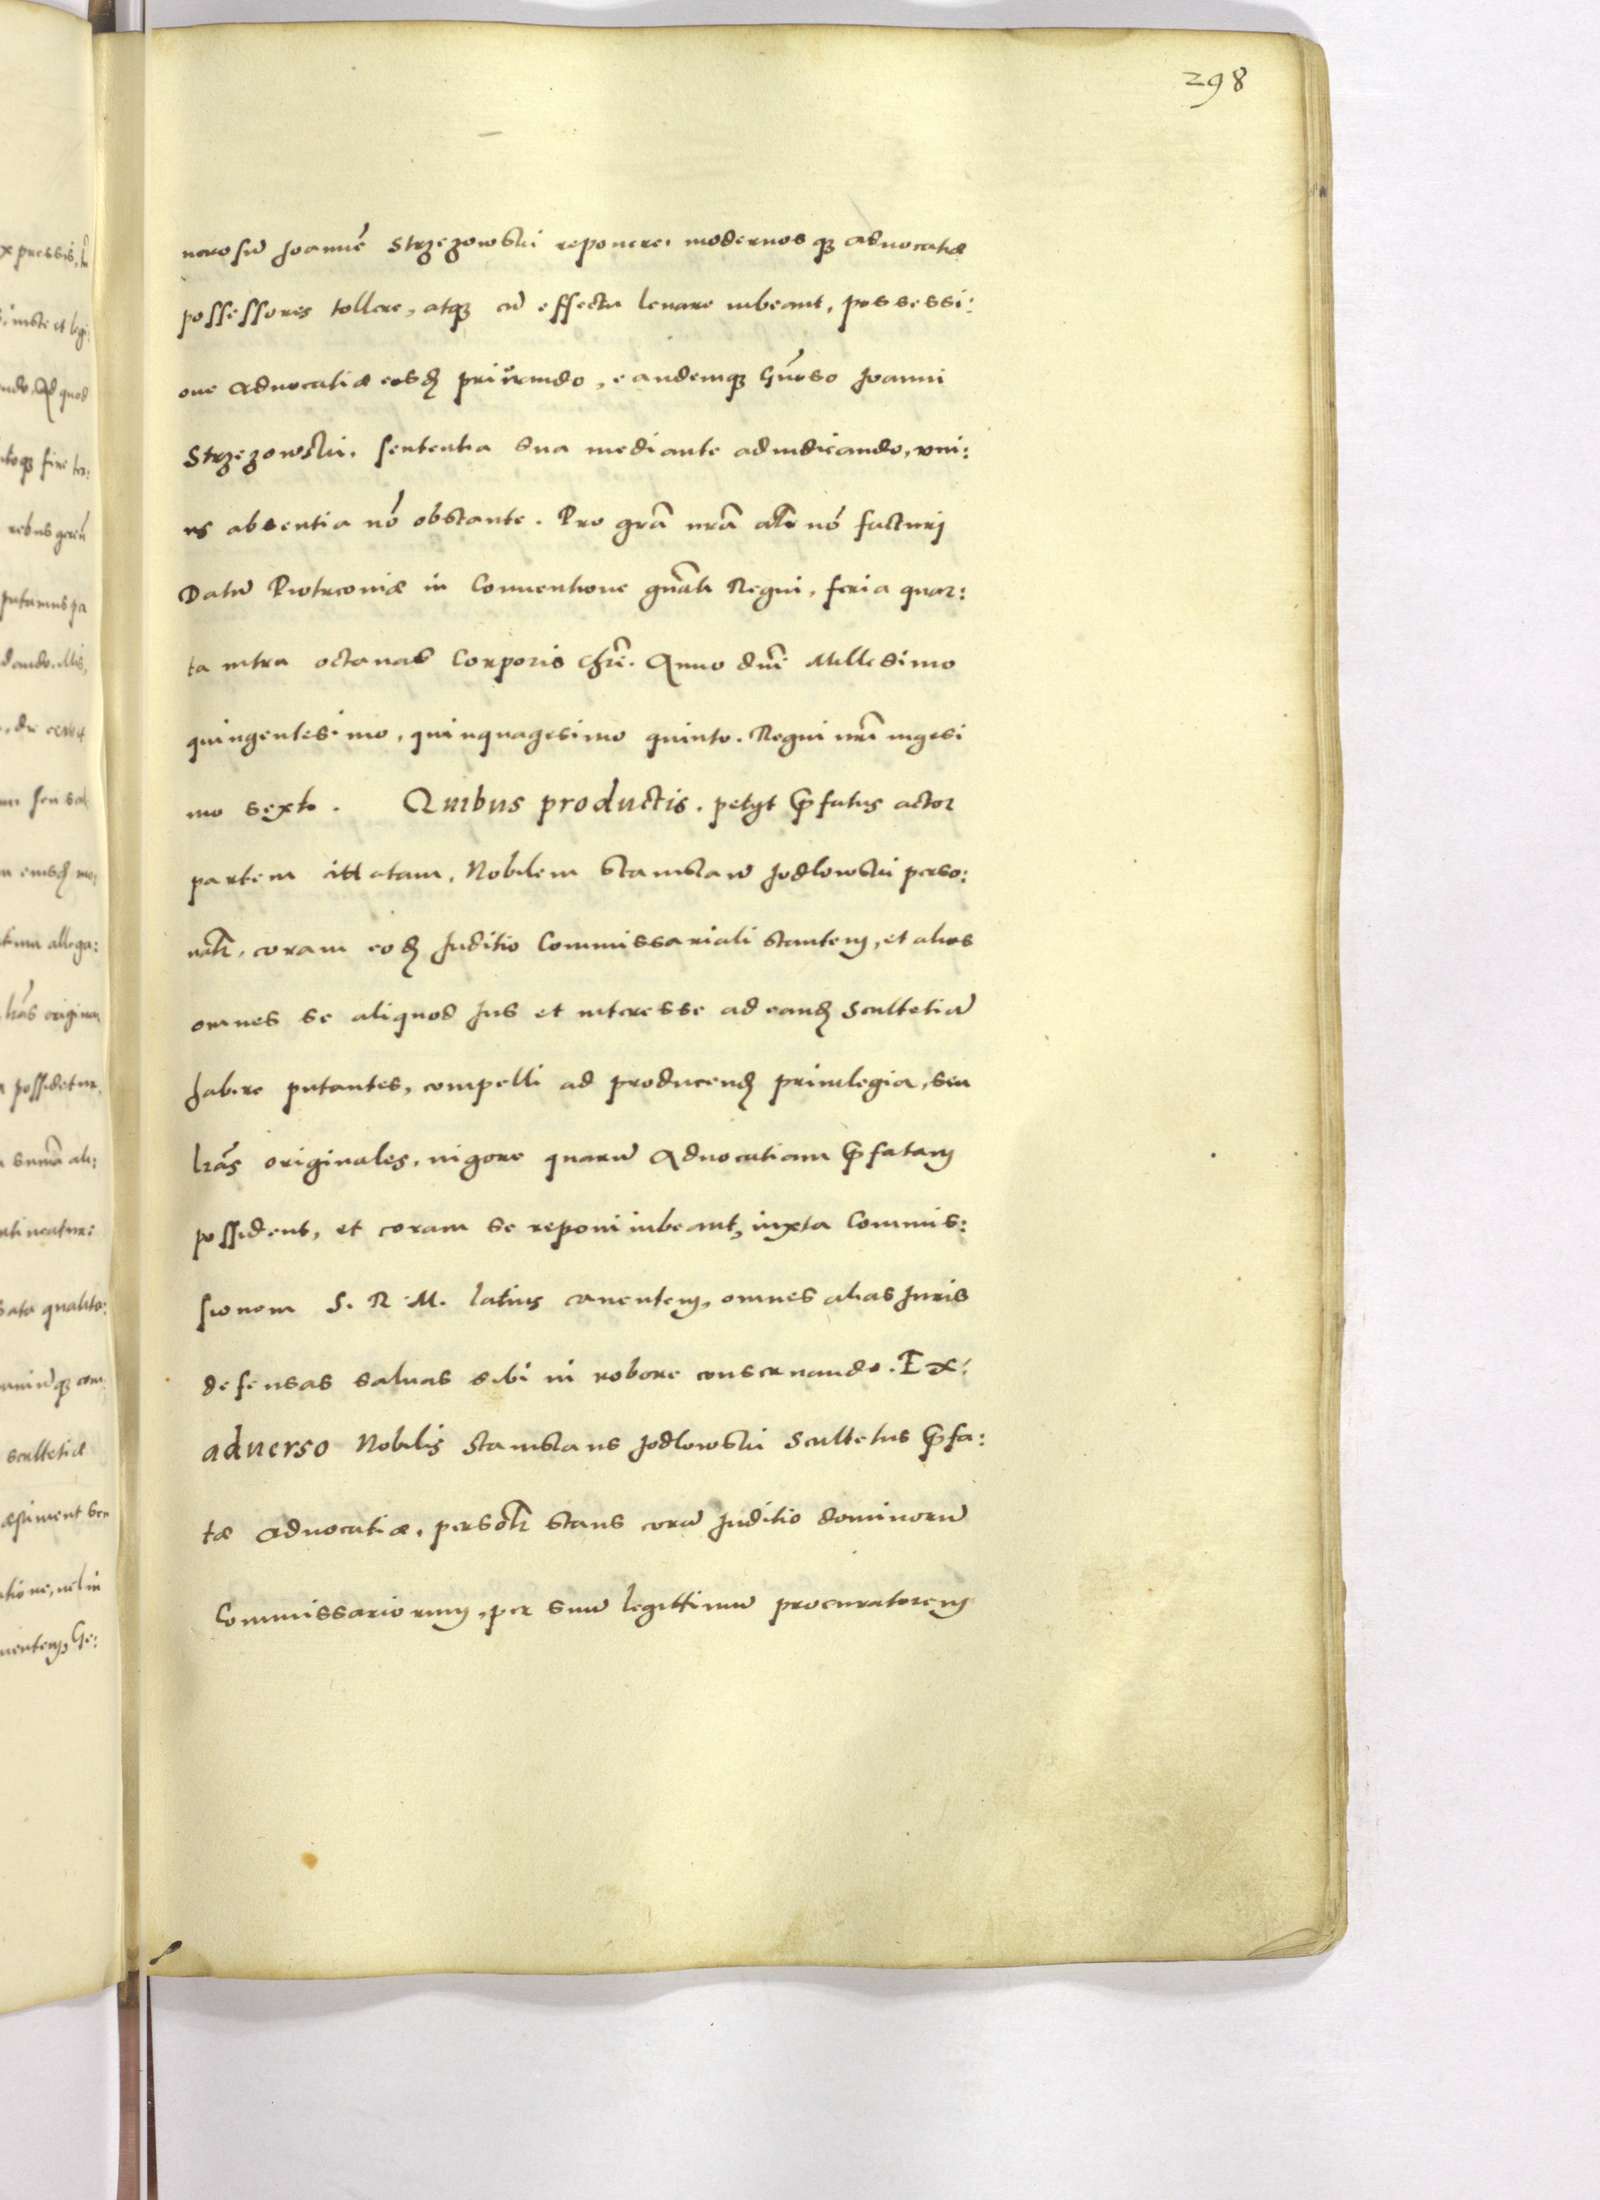 298
nerosũ Joannẽ Strzezowski reponere, modernosq3 aduocatiæ
possessores tollere, atq3 cũ effectu leuare iubeant, possessi:
one Aduocatiæ eosd. priuando, eandemq3 Gñoso Joanni
Strzezowski, sententia sua mediante adiudicando, vni:
us absentia nõ obstante. Pro grã nrã alr nõ facturj
Datũ Piotrcouiæ in Conuentione gñali Regni, feria quar:
ta intra octauas Corporis Chrĩ. Anno dnĩ Millesimo
quingentesimo, quinquagesimo quinto. Regni nrĩ uigesi
mo sexto. Quibus productis, petyt p̃fatus actor
partem cittatam, Nobilem Stanislaũ Jodlowski perso:
nalr, coram eod. Juditio Commissariali stantem, et alios
omnes se aliquod Jus et interesse ad eand. Scultetiã
habere putantes, compelli ad producend. priuilegia, seu
lrãs originales, uigore quarũ Aduocatiam p̃fatam
possident, et coram se reponi iubeant, iuxta Commis:
sionem S. R. M. latius cauentem, omnes alias Juris
defensas saluas sibi in robore conseruando. Ex:
aduerso Nobilis Stanislaus Jodlowski Scultetus p̃fa:
tæ Aduocatiæ, personlr stans corã Juditio dominorũ
Commissariorum, per suũ legittimũ procuratorem